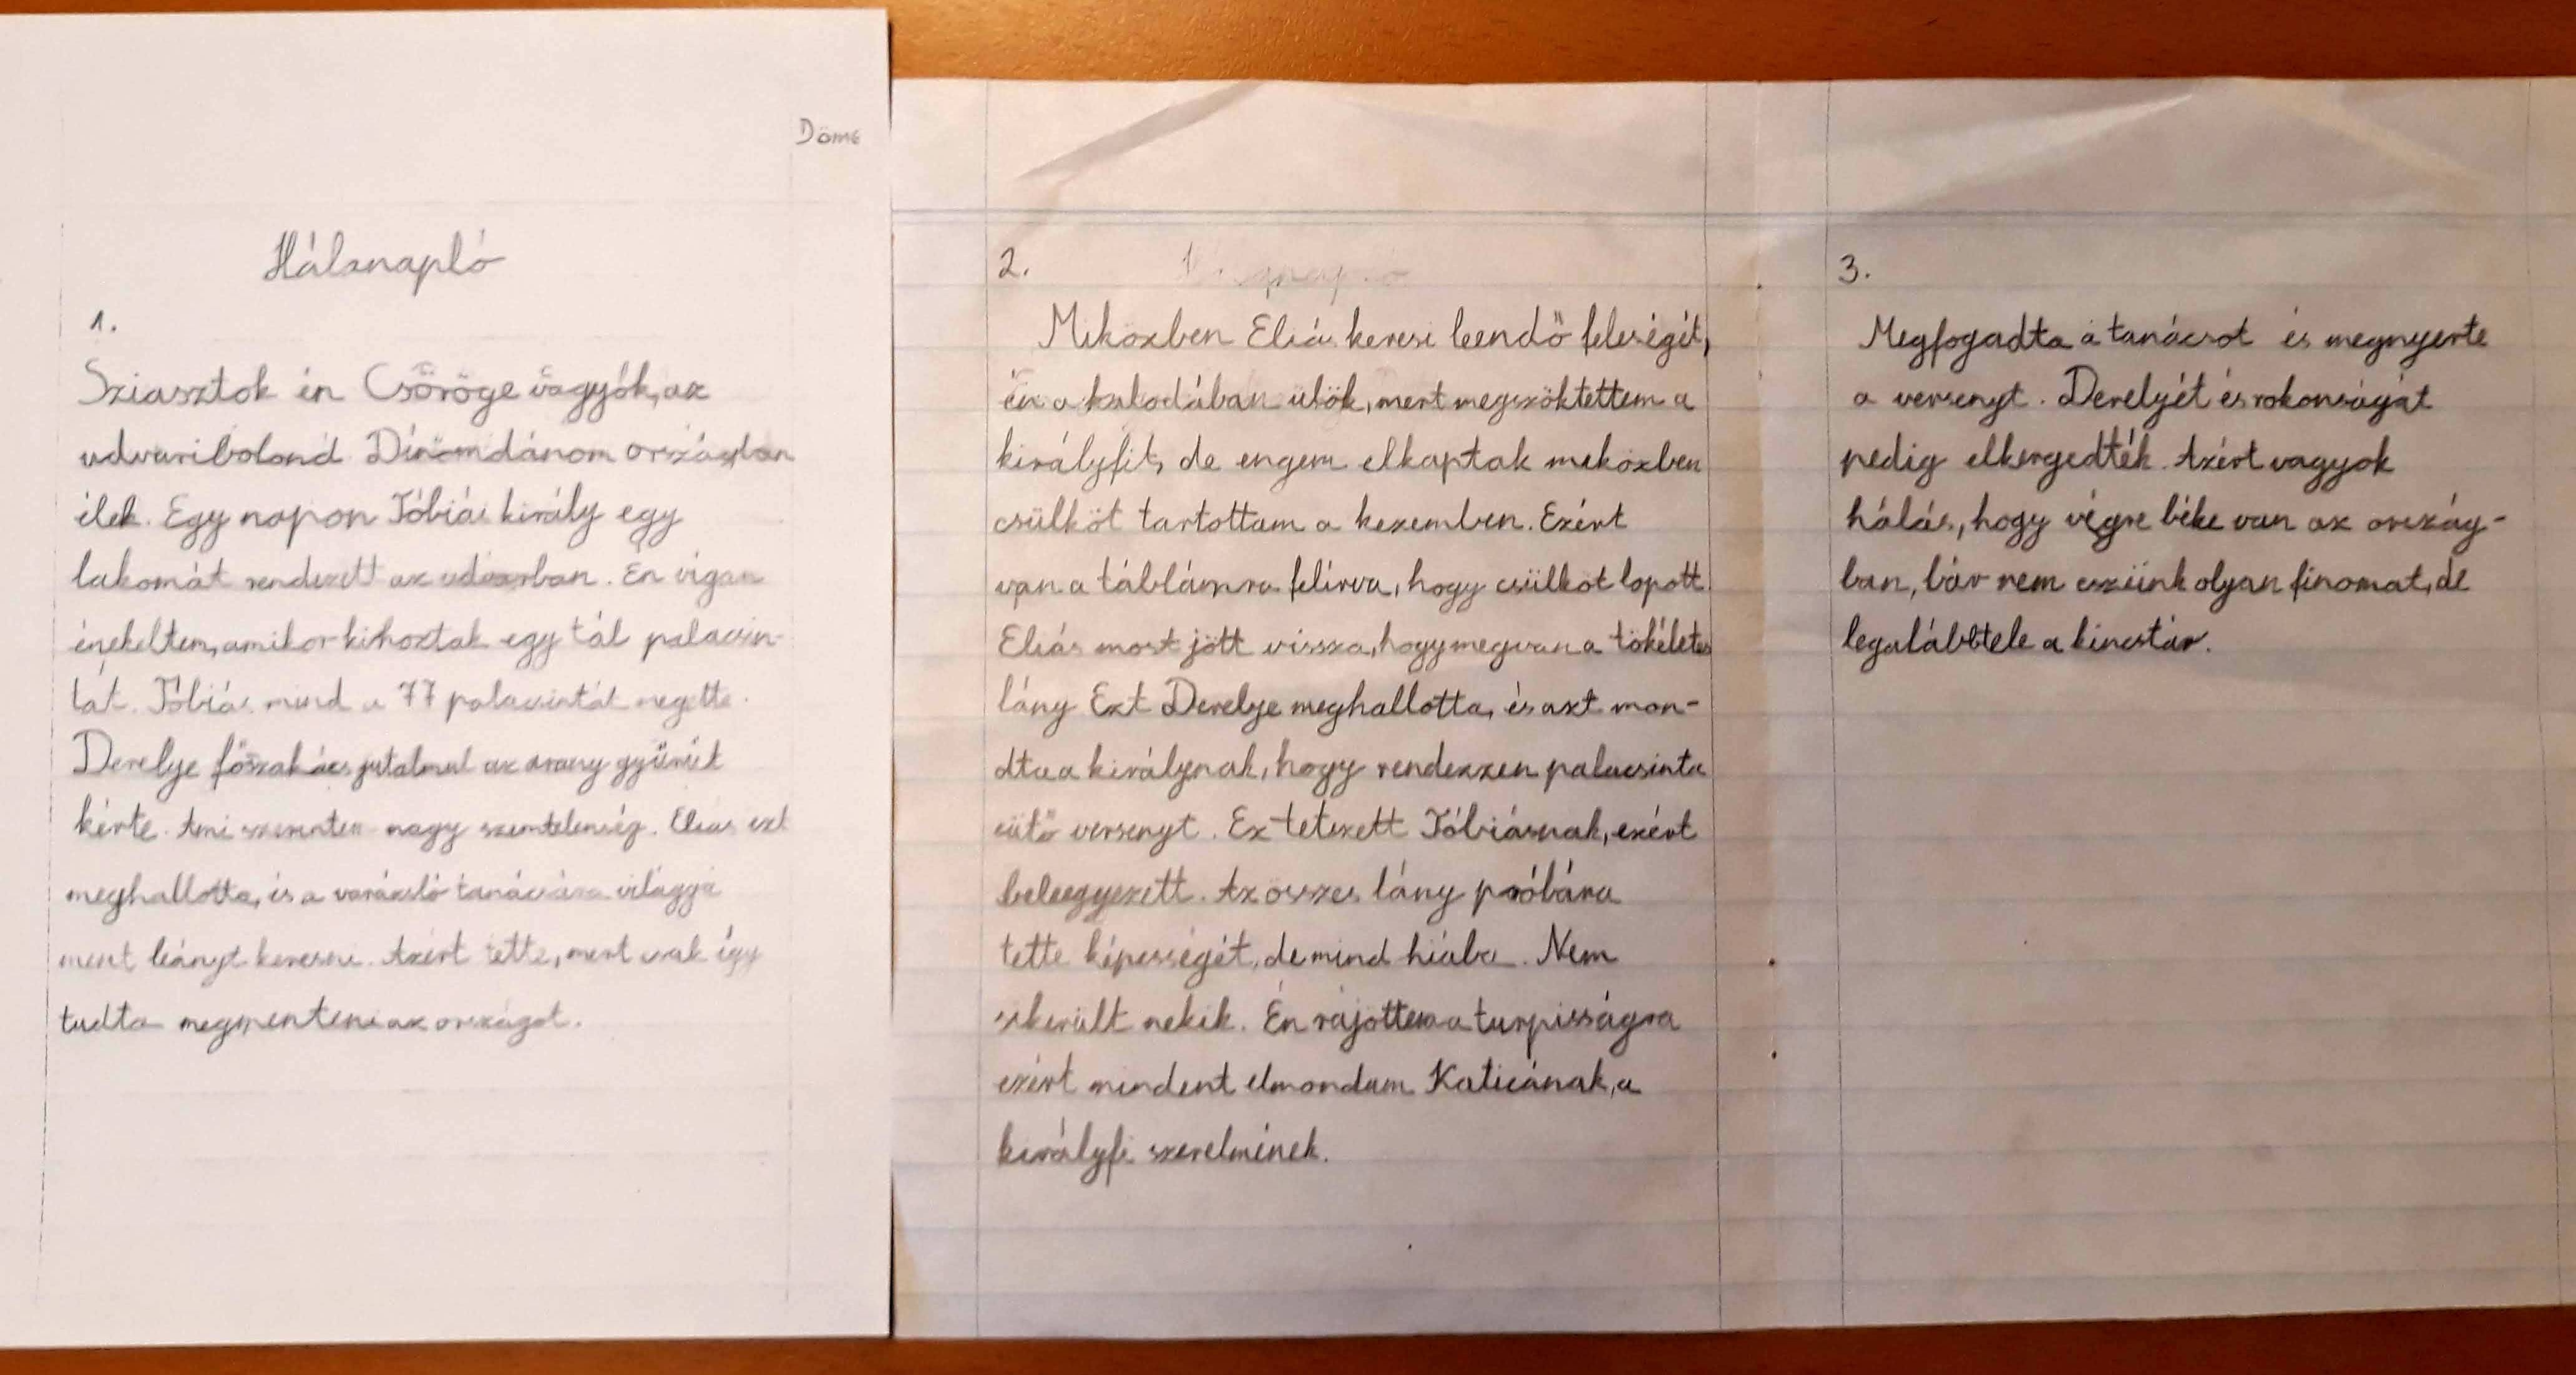 Döme
Hálanapló
1.
Sziasztok én Csöröge vagyok, az
udvaribolond Dínomdánom országban
élek. Egy napon Tóbiás király egy
lakomát rendezett az udvarban. Én vigan
énekeltem, amikor kihoztak egy tál palacsin-
tát. Tóbiás mind a 77 palacsintát megette.
Derelye főszakács jutalmul az arany gyűrűt
kérte. Ami szerintem nagy szemtelenség. Eliás ezt
meghallotta, és a varázsló tanácsára világgá
ment leányt keresni. Azért tette, mert csak így
tudta megmenteni az országot.
2.
Miközben Eliás keresi leendő feleségét,
én a kalodában ülök, mert megszöktettem a
királyfit, de engem elkaptak miközben
csülköt tartottam a kezemben. Ezért
van a táblámra felírva, hogy csülköt lopott.
Eliás most jött vissza, hogy megvan a tökéletes
lány Ezt Derelye meghallotta, és azt mon-
dta a királynak, hogy rendezzen palacsinta
sütő versenyt. Ez tetszett Tóbiásnak, ezért
beleegyezett. Az összes lány próbára
tette képességét, de mind hiába. Nem
sikerült nekik. Én rájöttem a turpisságra
ezért mindent elmondam Katicának, a
királyfi szerelmének.
3.
Megfogadta a tanácsot és megnyerte
a versenyt. Derelyét és rokonságát
pedig elkergedték. Azért vagyok
hálás, hogy végre béke van az ország-
ban, bár nem eszünk olyan finomat, de
legalább tele a kincstár.